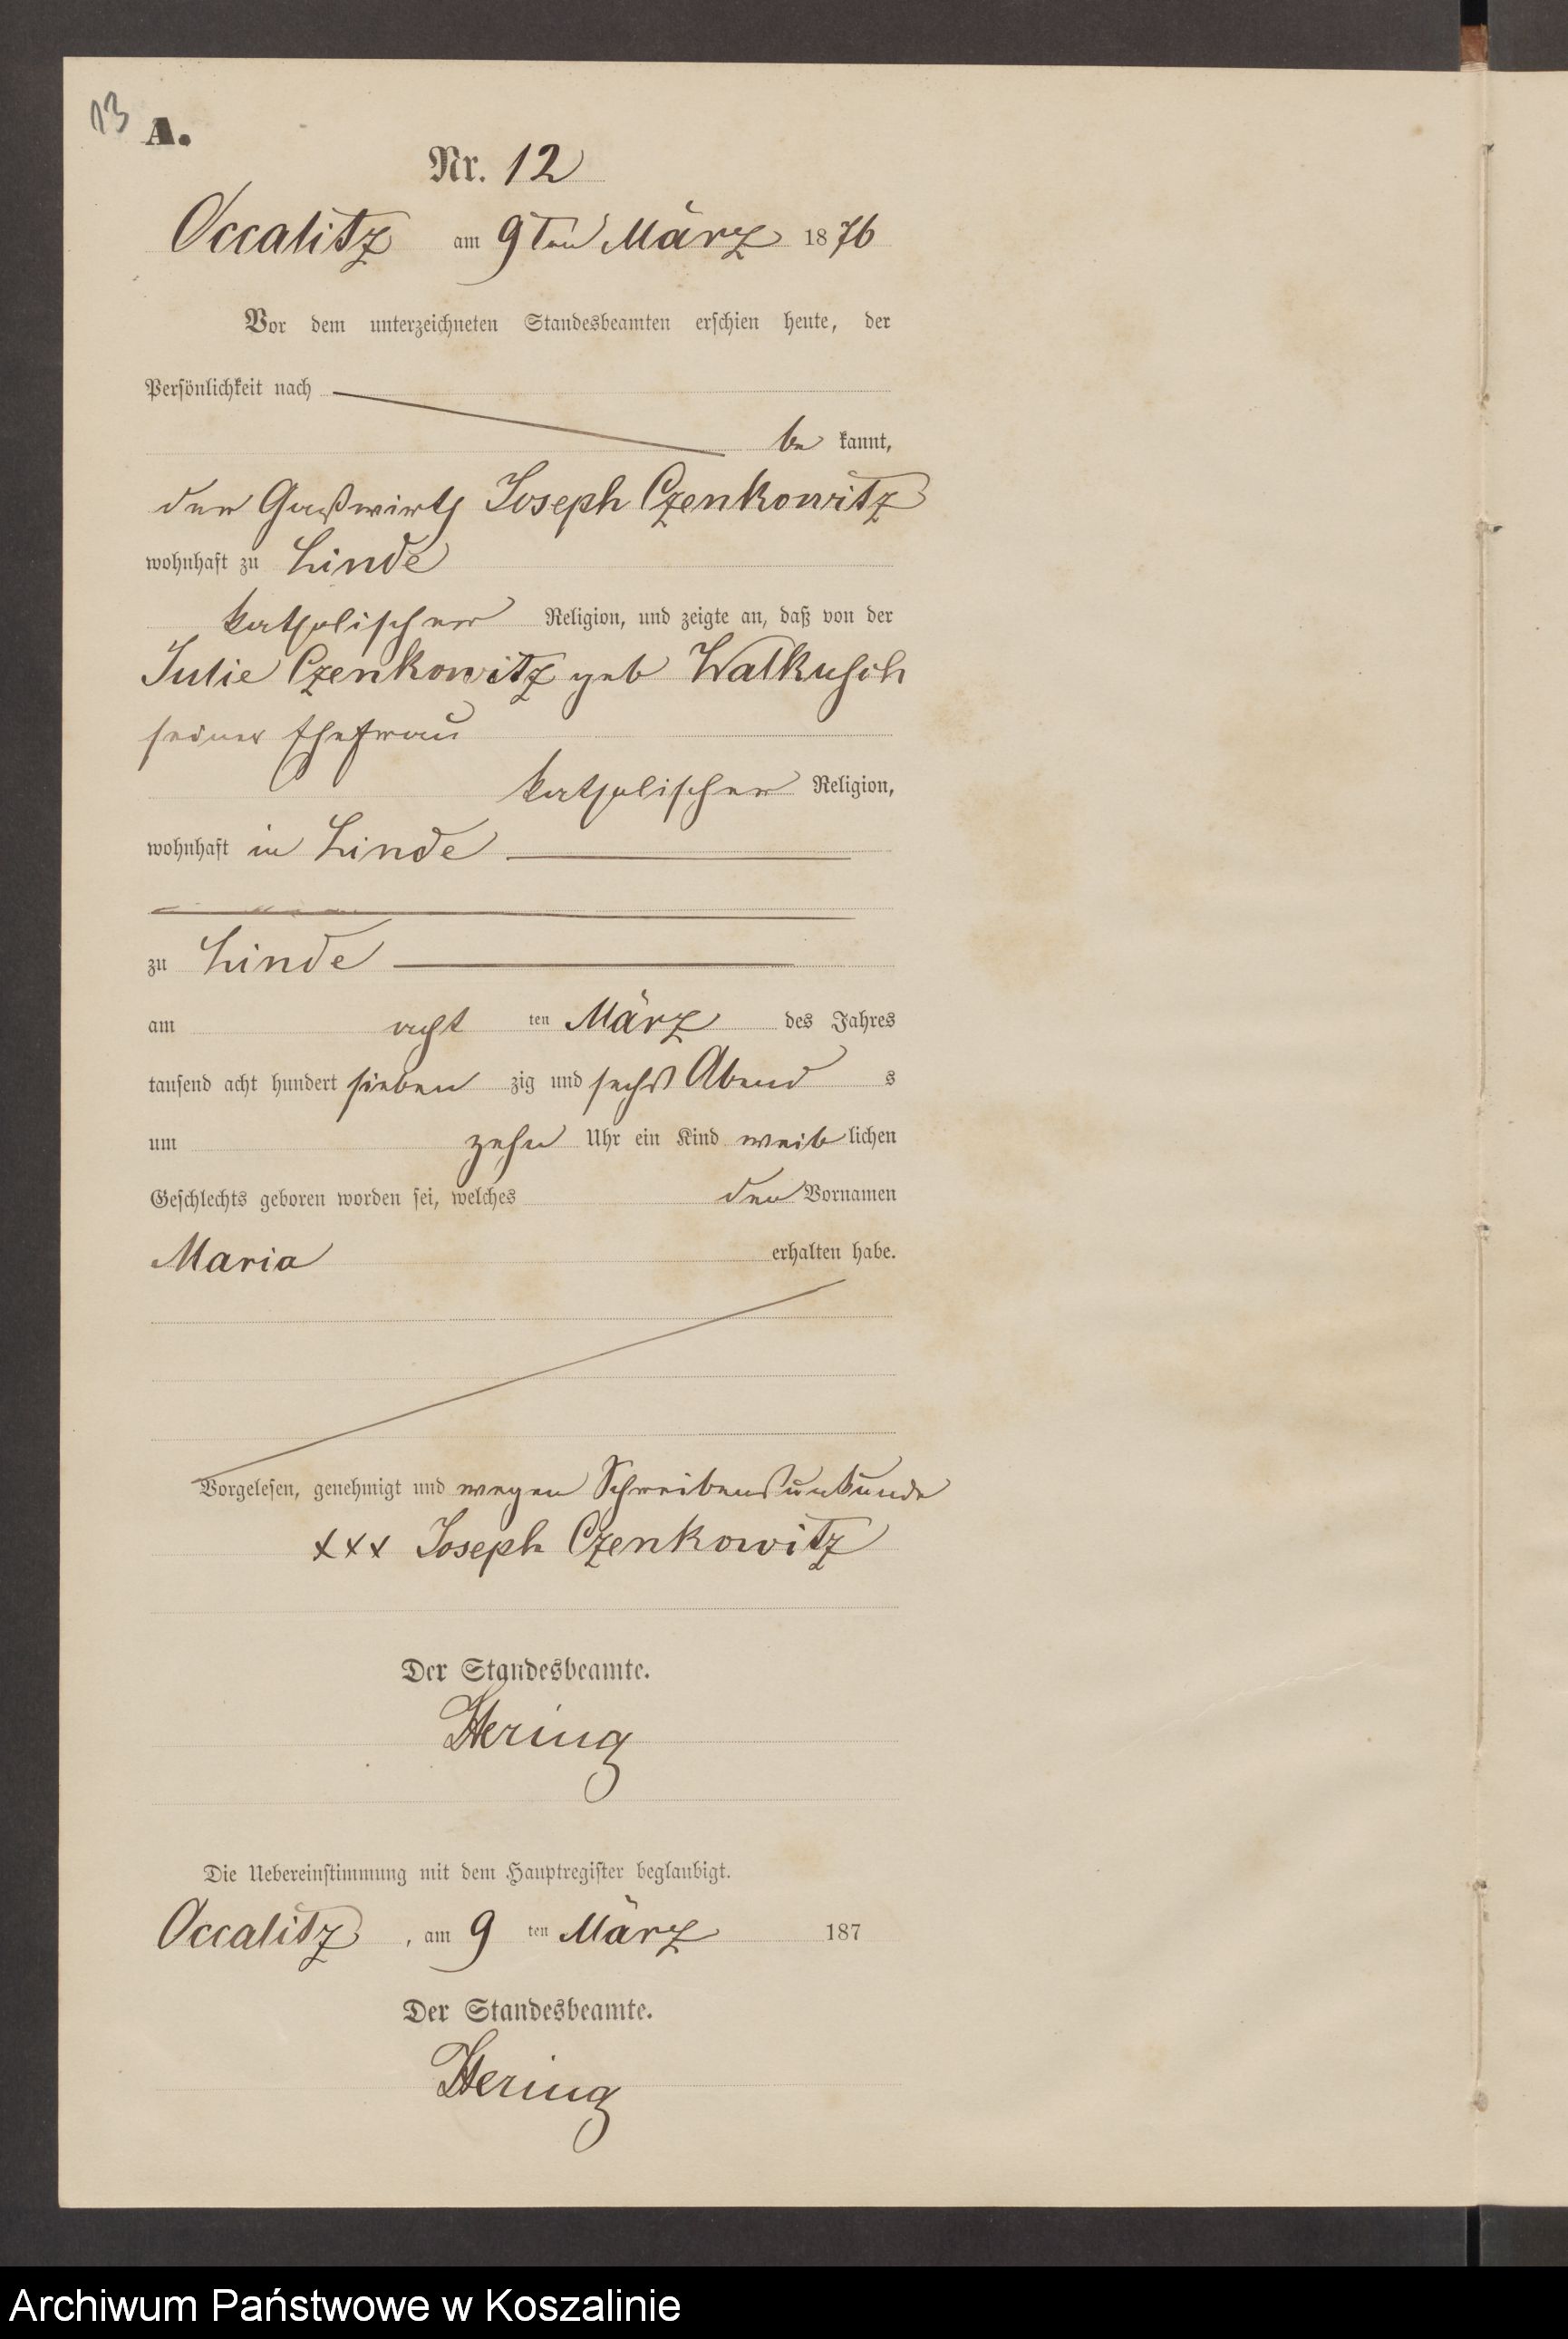 13
A.
Nr. 12
Occalitz am 9ten März 1876
Vor dem unterzeichneten Standesbeamten erschien heute, der
Persönlichkeit nach
be kannt,
der Gastwirth Joseph Czenkowitz
wohnhaft zu Linde
katholischer Religion, und zeigte an, daß von der
Julie Czenkowitz geb Walkusch
seiner Ehefrau
katholischer Religion,
wohnhaft in Linde
zu Linde
am acht ten März des Jahres
tausend acht hundert sieben zig und sechs Abend s
um zehn Uhr ein Kind weib lichen
Geschlechts geboren worden sei, welches den Vornamen
Maria erhalten habe.
Vorgelesen, genehmigt und wegen Schreibensunkunde
xxx Joseph Czenkowitz
Der Standesbeamte.
Hering
Die Uebereinstimmung mit dem Hauptregister beglaubigt.
Occalitz, am 9 ten März 187
Der Standesbeamte.
Hering
Archiwum Państwowe w Koszalinie